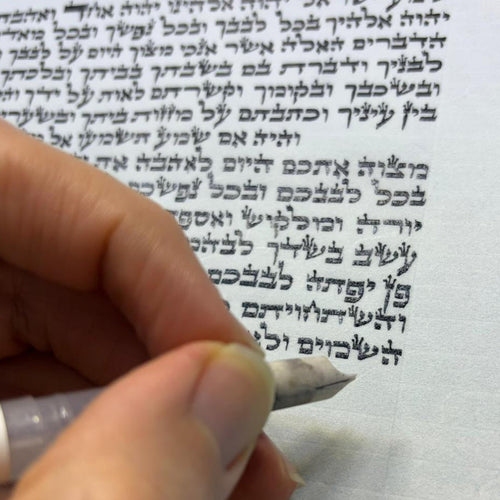 יהוה אלהינו יהוה אחד ואהבת
יהוה אלהיך בכל לבבך ובכל נפשך ובכל מאדך
הדברים האלה אשר אנכי מצוך היום על לבבך
לבניך ודברת בם בשבתך בביתך ובלכתך
ובשכבך ובקומך וקשרתם לאות על ידך והיו
בין עיניך וכתבתם על מזוזת ביתך ובשעריך
והיה אם שמע תשמעו אל
מצוה אתכם היום לאהבה את
בכל לבבכם ובכל נפשכם
יורה ומלקוש ואספת
עשב בשדך
פן יפתה לבבכם
והשתחויתם
השמים ולא